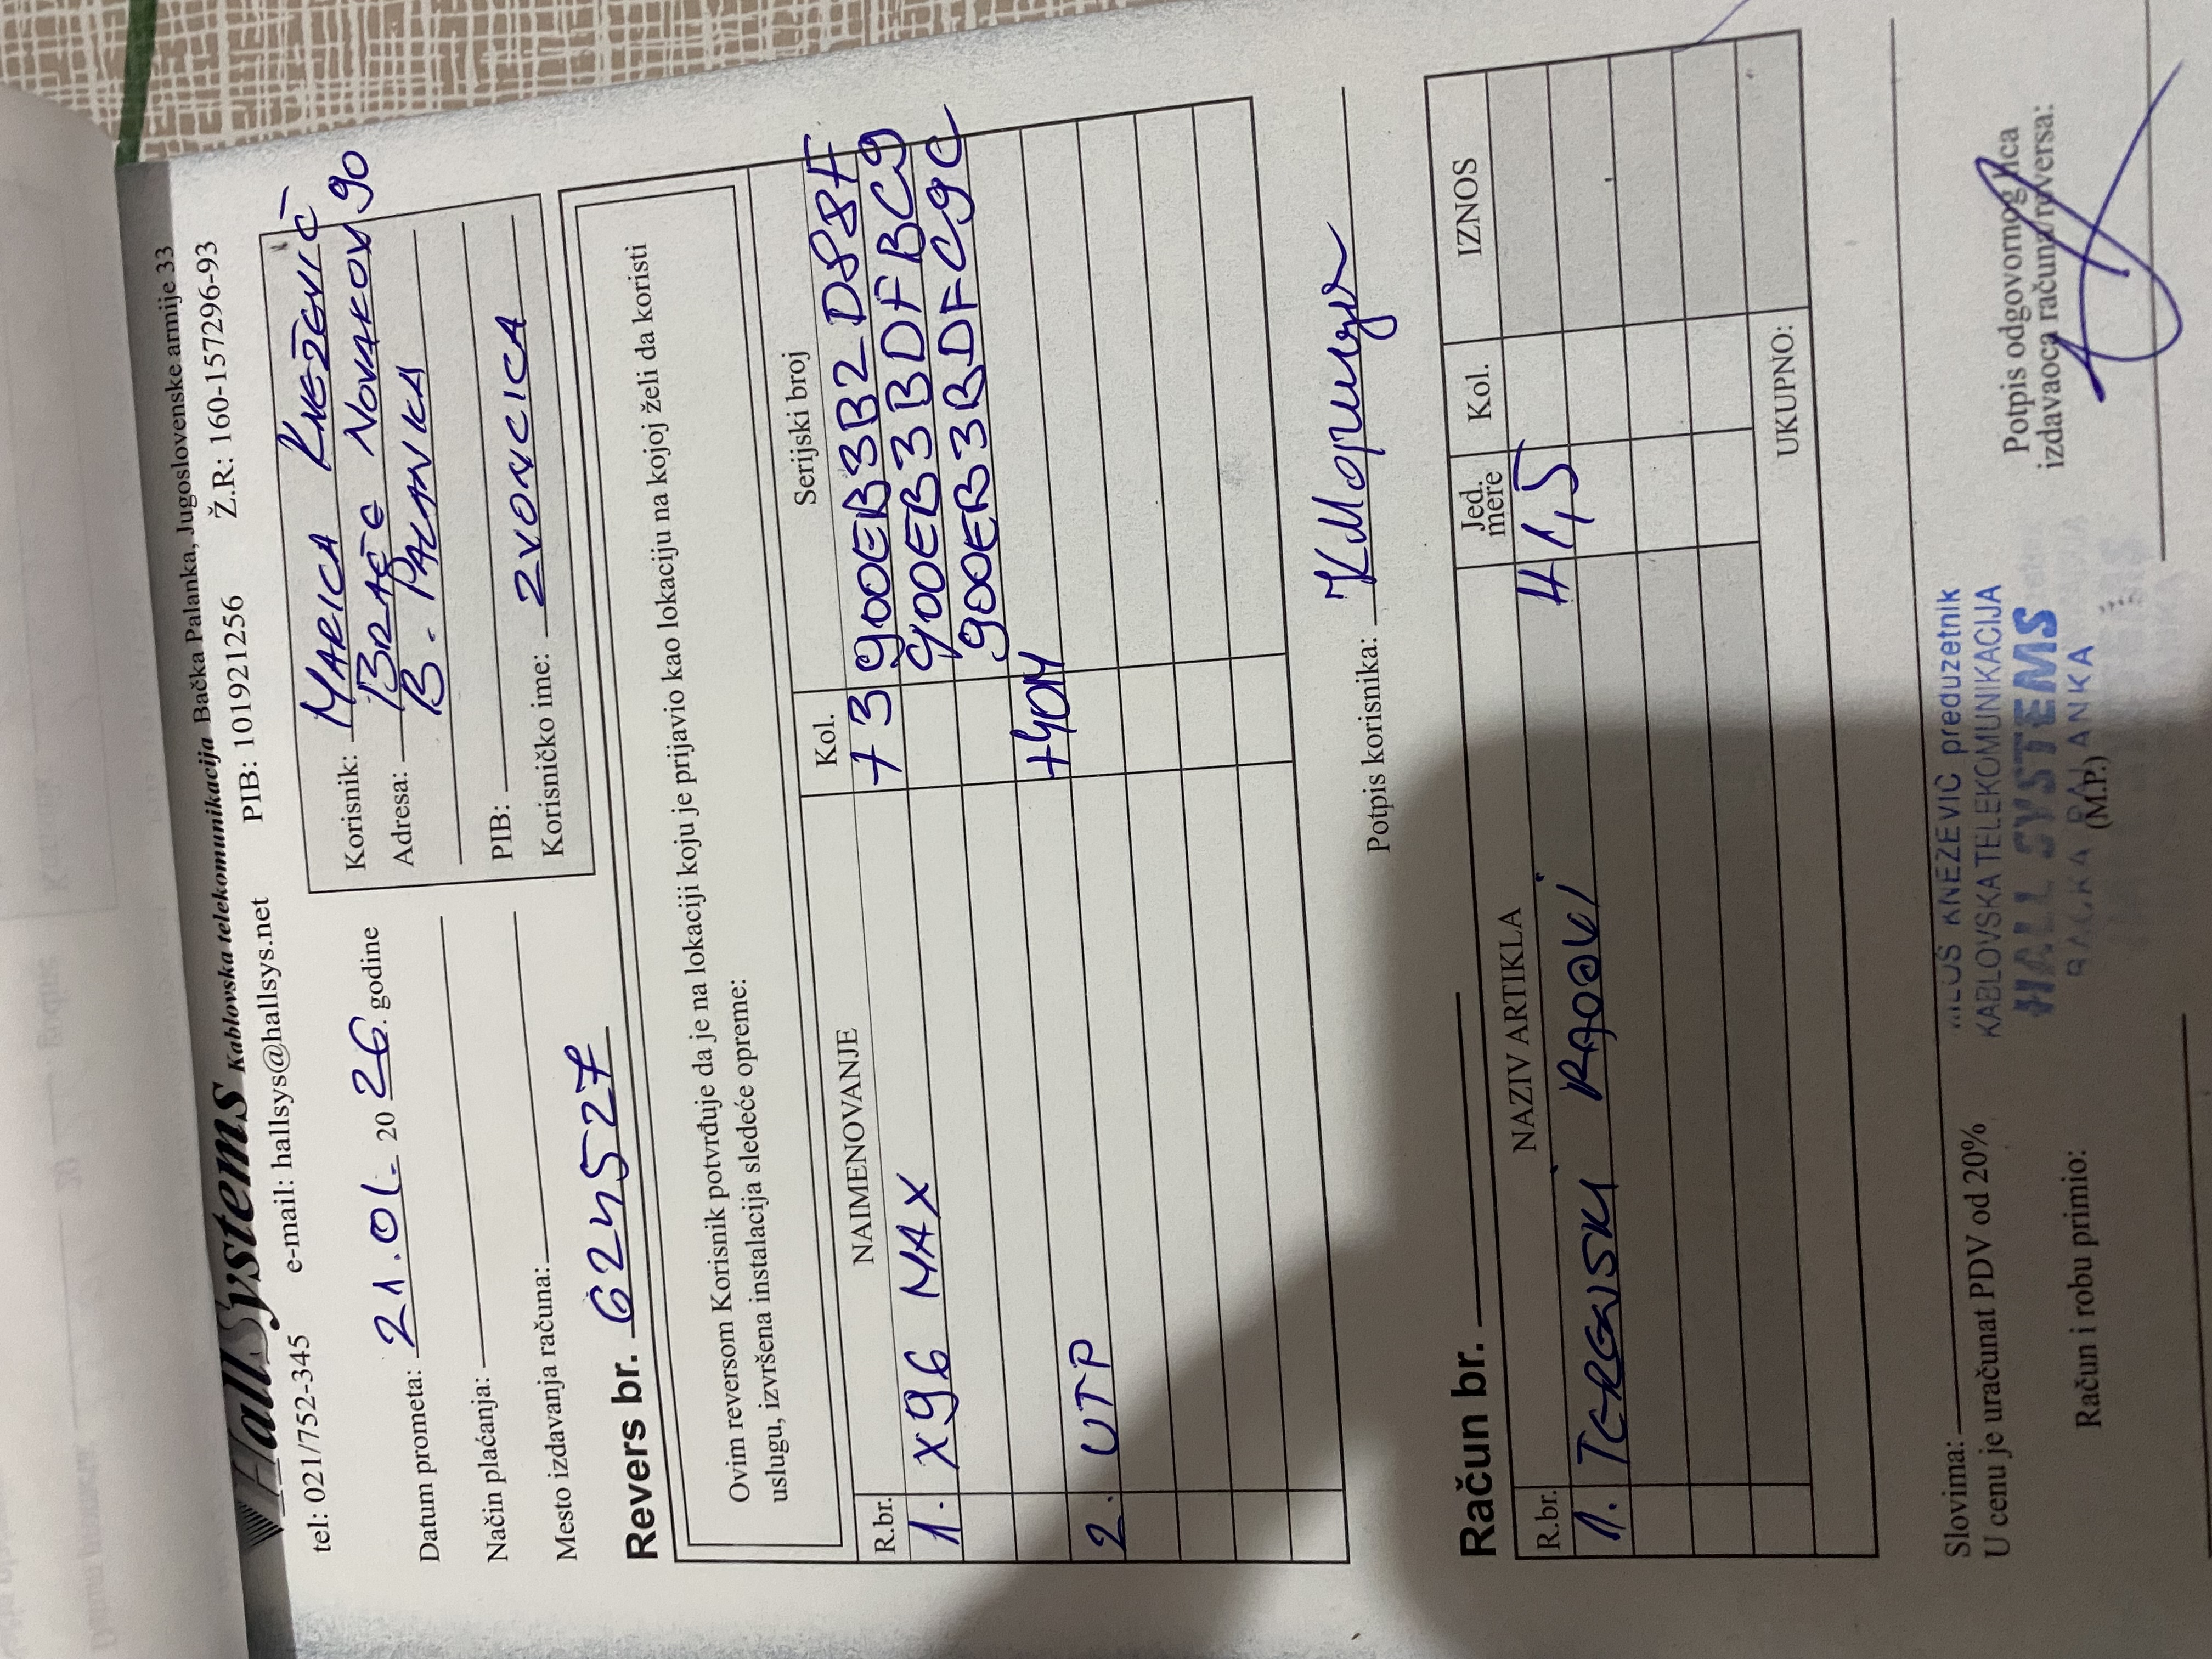 HallSystems Kablovska telekomunikacija Bačka Palanka, Jugoslovenske armije 33
tel: 021/752-345 e-mail: hallsys@hallsys.net PIB: 101921256 Ž.R: 160-157296-93
Datum prometa: 21.01. 2026. godine
Način plaćanja:
Mesto izdavanja računa:
Korisnik: MARICA KNEŽEVIĆ
Adresa: BRAĆE NOVAKOV 90
B. PALANKA
PIB:
Korisničko ime: ZVONCICA
Revers br. 6245527
Ovim reversom Korisnik potvrđuje da je na lokaciji koju je prijavio kao lokaciju na kojoj želi da koristi
uslugu, izvršena instalacija sledeće opreme:
R.br. NAIMENOVANJE Kol. Serijski broj
1. X96 MAX +3 900EB3B2D88F
900EB3BDFBC9
900EB3BDFC9C
2. UTP +40M
Potpis korisnika:
Račun br.
R.br. NAZIV ARTIKLA Jed. mere Kol. IZNOS
1. TERENSKI RADOVI H 1,5
UKUPNO:
Slovima:
U cenu je uračunat PDV od 20%
Račun i robu primio:
KNEŽEVIĆ preduzetnik
KABLOVSKA TELEKOMUNIKACIJA
HALL SYSTEMS
BAČKA PALANKA
(M.P.)
Potpis odgovornog lica
izdavaoca računa/reversa: